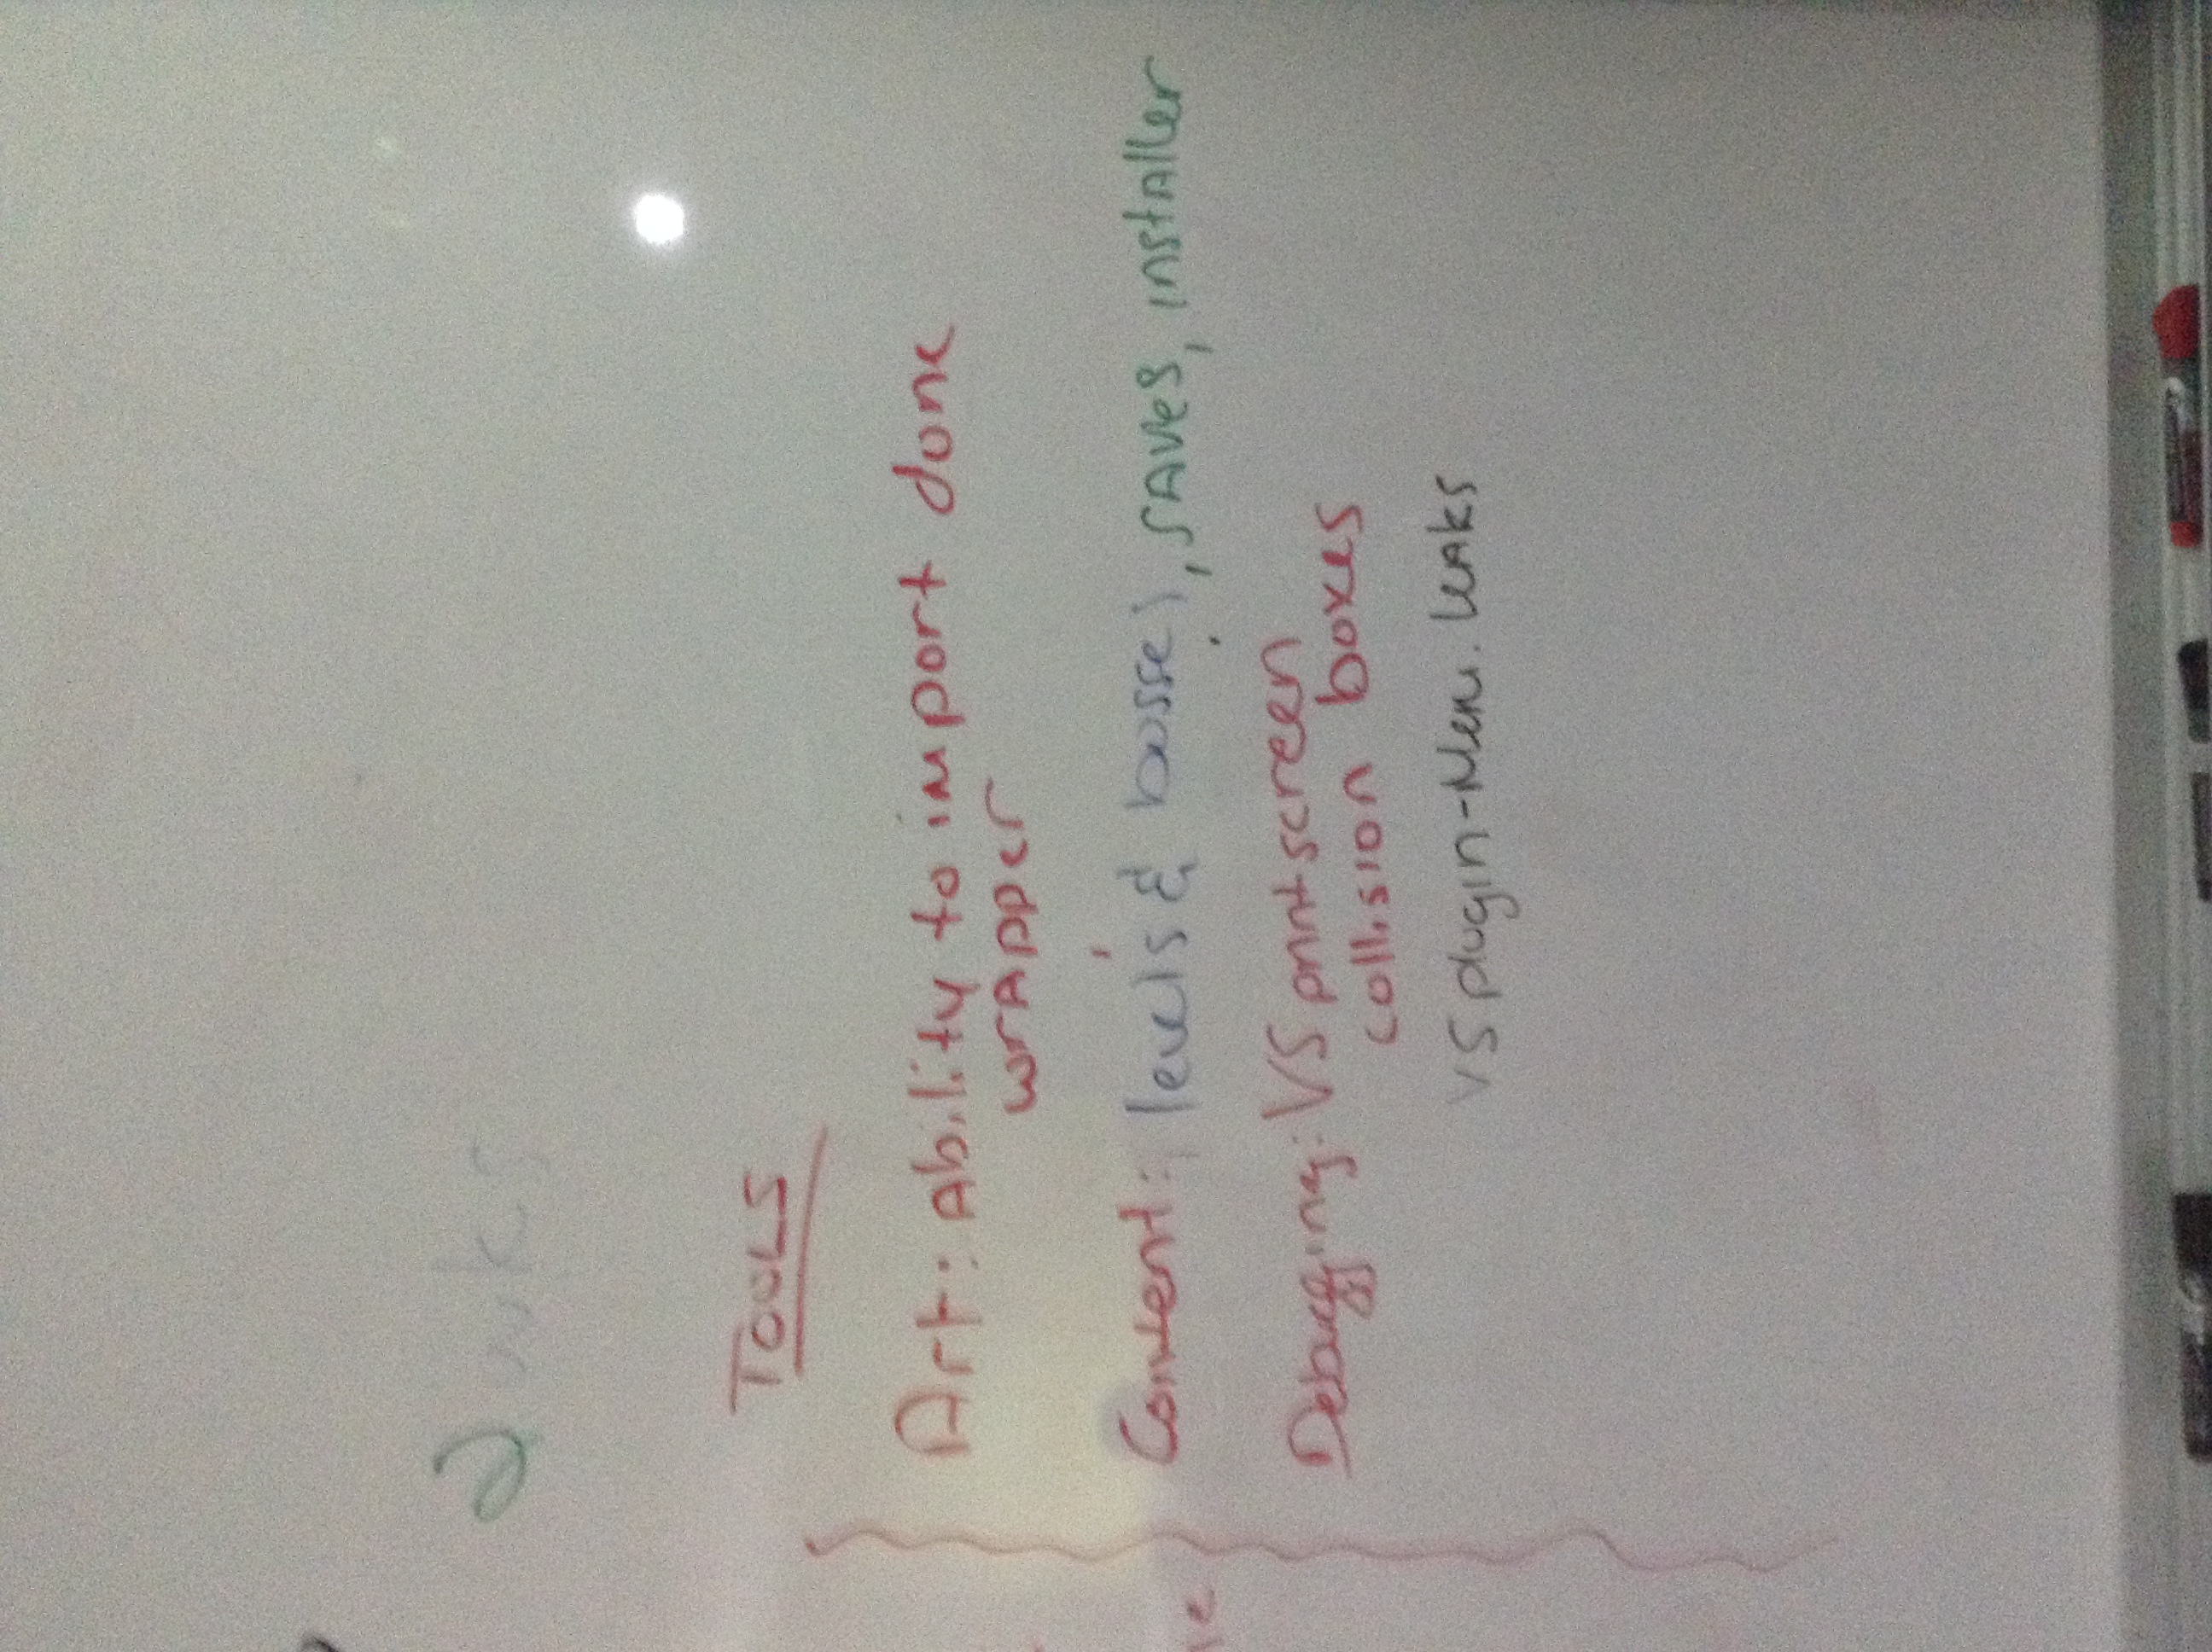 2 wks
TOOLS
Art: Ability to import done
wrapper
Content: levels & bosses, SAVES, installer
Debugging: VS printscreen
collision boxes
VS plugin-Mem. leaks